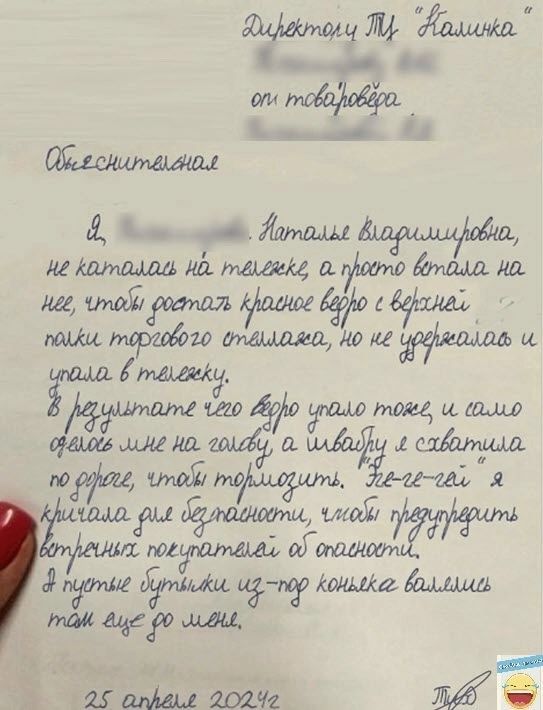 Директору ТЦ "Калинка"
от товароведа
Объяснительная
Я, Наталья Владимировна,
не каталась на тележке, а просто встала на
нее, чтобы достать красное ведро с верхней
полки торгового стеллажа, но не удержалась и
упала в тележку.
В результате чего ведро упало тоже, и само
оделось мне на голову, а швабру я схватила
по дороге, чтобы тормозить. "Эге-ге-гей" я
кричала для безопасности, чтобы предупредить
встречных покупателей об опасности.
А пустые бутылки из-под коньяка валялись
там еще до меня.
25 апреля 2024г